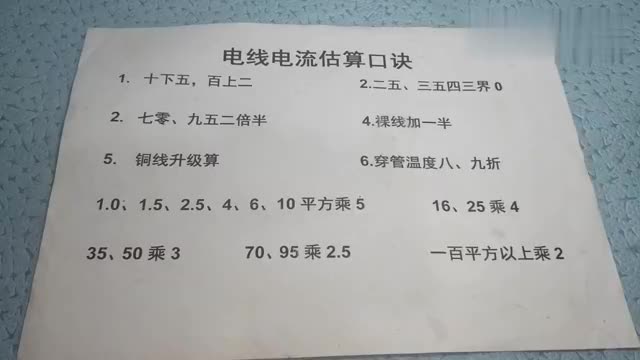 电线电流估算口诀
1. 十下五，百上二 2.二五、三五四三界0
2. 七零、九五二倍半 4.祼线加一半
5. 铜线升级算 6.穿管温度八、九折
1.0、1.5、2.5、4、6、10 平方乘 5 16、25 乘 4
35、50 乘 3 70、95 乘 2.5 一百平方以上乘 2